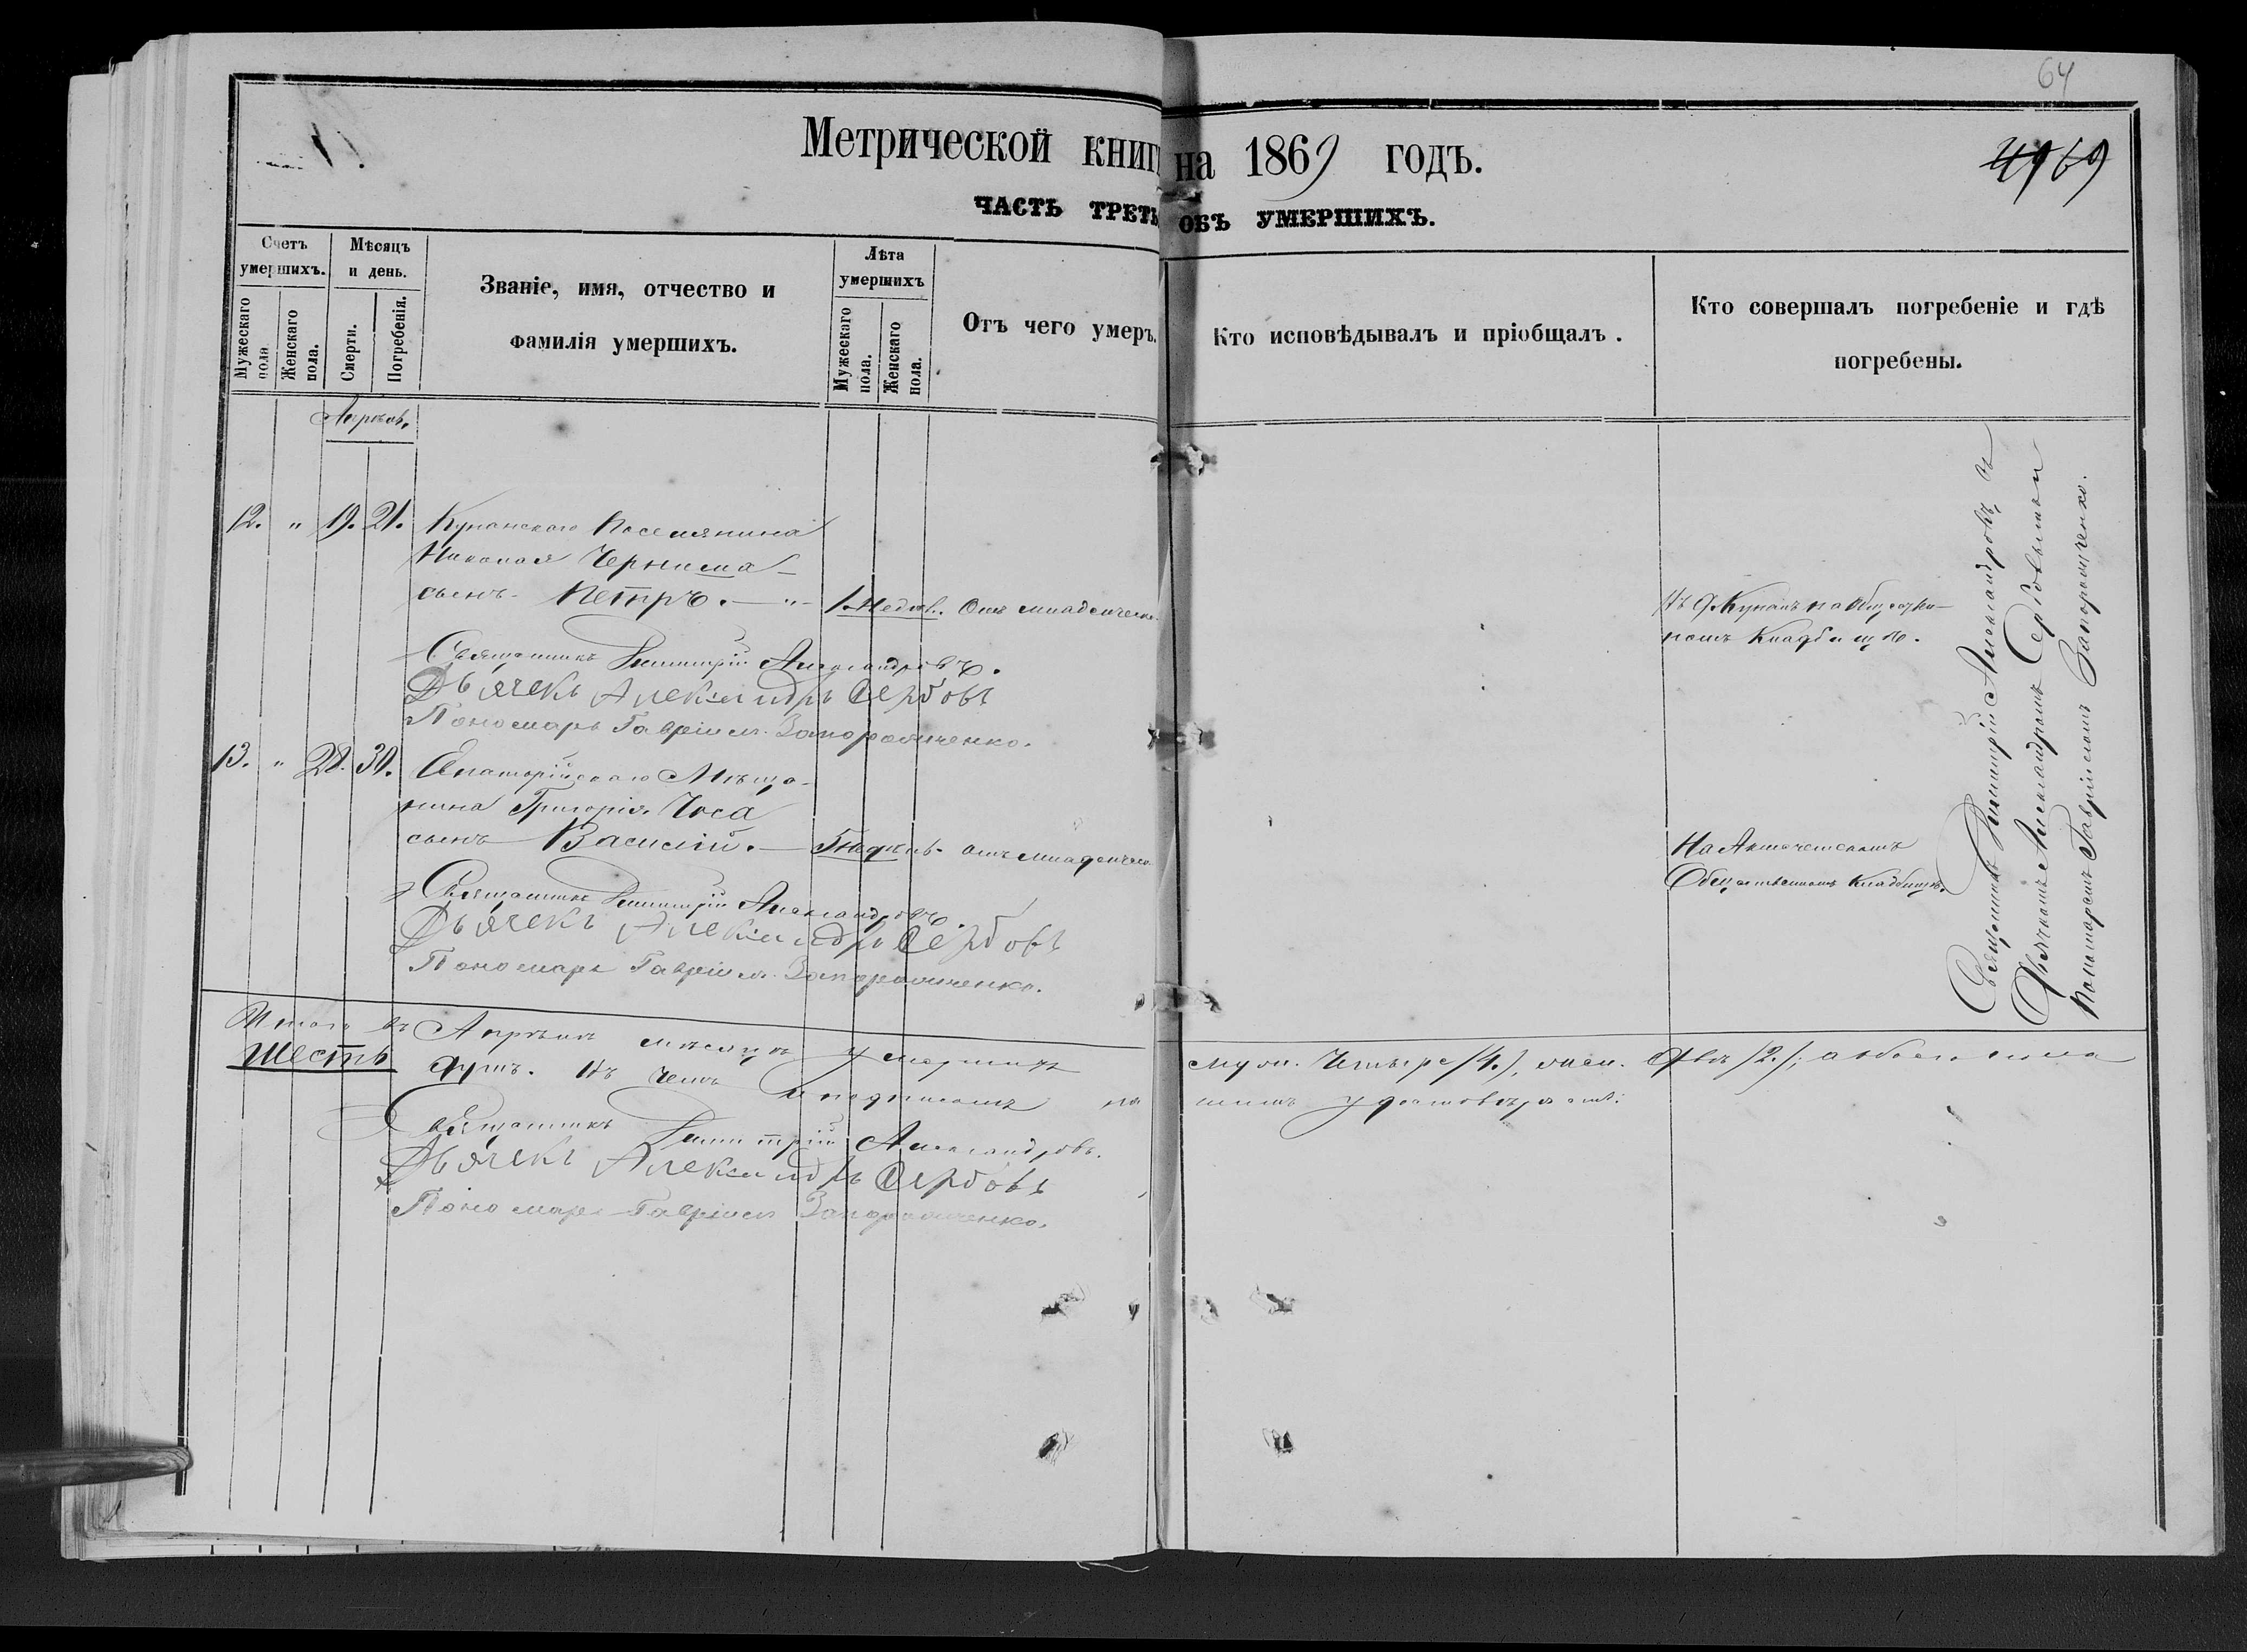 64
Метрической книг на 1869 годъ.
4969
ЧАСТЬ ТРЕТЬ ОБЪ УМЕРШИХЪ.
Счетъ умершихъ.
Мужескаго пола
Женскаго пола.
Мѣсяцъ и день.
Смерти.
Погребенія.
Званіе, имя, отчество и
фамилія умершихъ.
Лѣта умершихъ
Мужескаго пола.
Женскаго пола.
Отъ чего умеръ.
Кто исповѣдывалъ и пріобщалъ.
Кто совершалъ погребеніе и гдѣ
погребены.
Апрѣль.
12. " 19. 21. Куранскаго Поселянина
Николая
сынъ Петръ. — " — 1. Недѣл. Отъ младенческ.
Въ д. Куранъ на
номъ Кладбищѣ.
Священникъ Димитрій Александровъ.
Дьячекъ Александръ Сербовъ
Пономарь Гавріилъ Запорожченко.
13. " 28. 30. Евпаторійскаго Мѣща-
нина Григорія Чоса
сынъ Василій. — Недѣль. отъ младенческ
На
Общественномъ Кладбищѣ.
Священникъ Димитрій Александровъ
Дьячекъ Александръ Сербовъ
Пономарь Гавріилъ Запорожченко.
Священникъ Димитрій Александровъ съ
Дьячкомъ Александромъ Сербовымъ и
Пономаремъ Гавріиломъ Запорожченко.
Итого въ Апрѣлѣ мѣсяцѣ умершихъ муж. Четыре /4./, жен. Двѣ /2./; а обоего пола
Шесть душъ. Въ чемъ и подписомъ на шимъ удостовѣряемъ:
Священникъ Димитрій Александровъ.
Дьячекъ Александръ Сербовъ
Пономарь Гавріилъ Запорожченко.